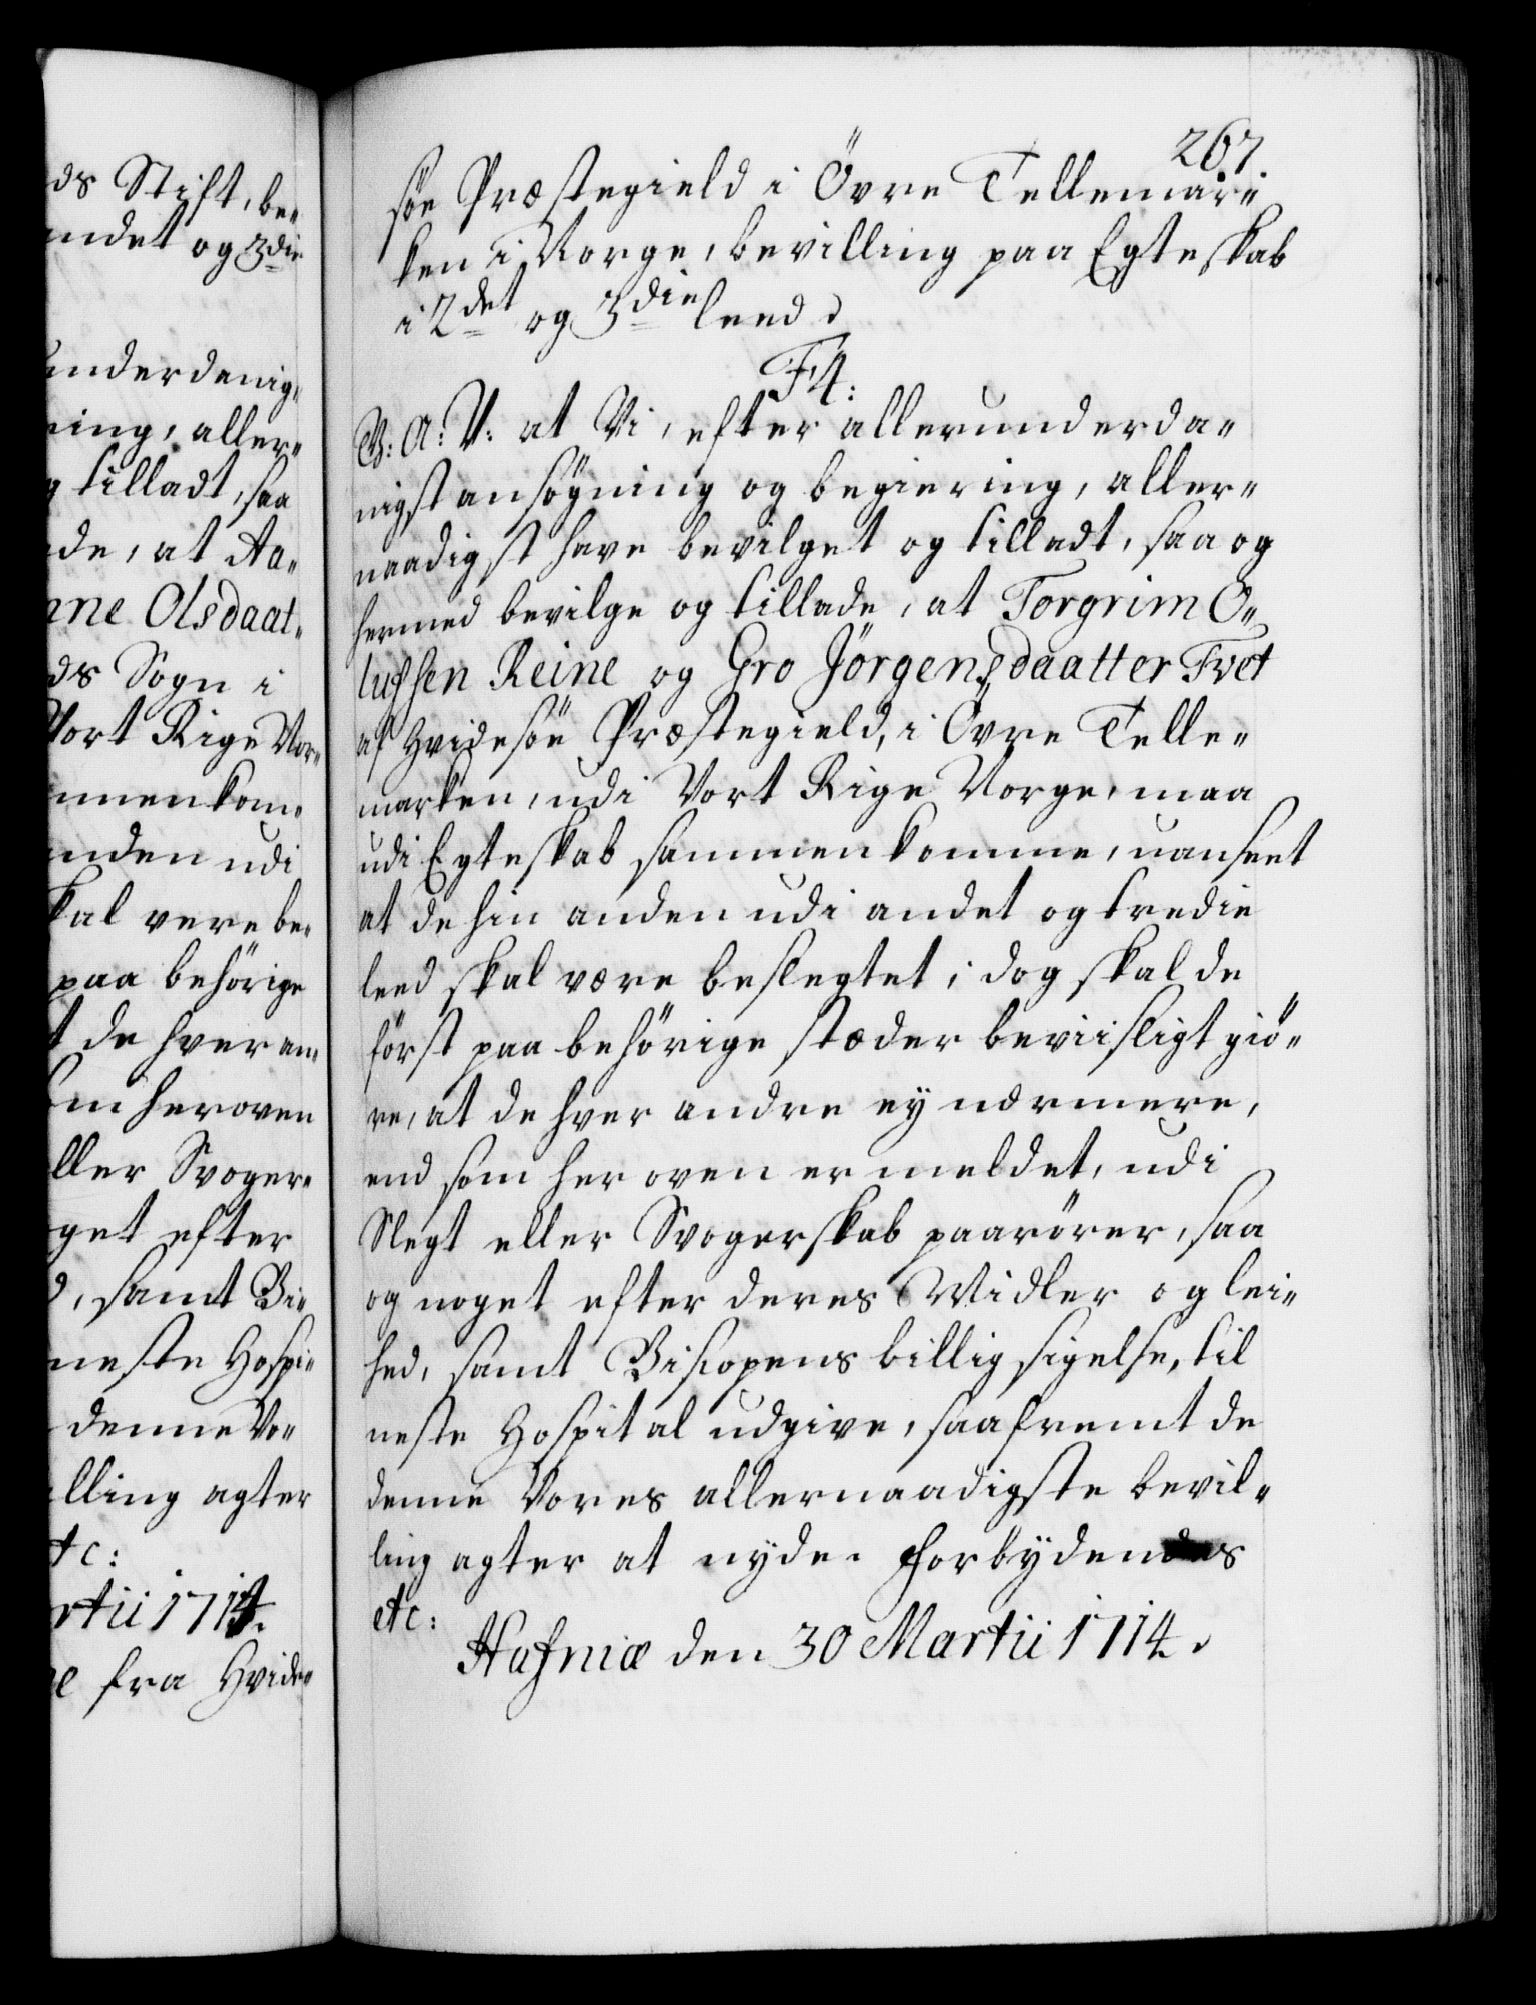 ds Stift, be¬
ndet og 3die
underdenig¬
ring, aller¬
g tilladt, saa
de, at Aa¬
nne Olsdaat¬
ds Sogn i
Vort Rige Nor¬
mmenkom¬
nden udi
kal vere be¬
paa behörige
t de hver an¬
om heroven
ller Svoger¬
get efter
d, samt Bi¬
neste Hospi¬
denne Vo¬
lling agter
tc:
rtii 1714.
e fra Hvide¬
267.
söe Præstegield i Övre Tellemar¬
ken i Norge, bevilling paa Egteskab
i 2det og 3die leed
F4:
V: A: V: at Vi, efter allerunderda¬
nigst ansögning og begiering, aller¬
naadigst have bevilget og tilladt, saa og
hermed bevilge og tillade, at Torgrim O¬
lufsen Reine og Gro Jörgensdaatter Tvet
af Hvidesöe Præstegield, i Övre Telle¬
marken, udi Vort Rige Norge, maa
udi Egteskab sammenkomme, uanseet
at de hin anden udi andet og tredie
leed skal være beslegtet; dog skal de
först paa behörige stæder beviisligt giö¬
re, at de hver andre ey nærmere,
end som her oven er meldet, udi
Slegt eller Svogerskab paarörer, saa
og noget efter deres Midler og lei¬
hed, samt Biscopens billig sigelse, til
neste Hospital udgive, saafremt de
denne Vores allernaadigste bevil¬
ling agter at nyde. Forbydendes
etc:
Hafniæ den 30 Martii 1714.